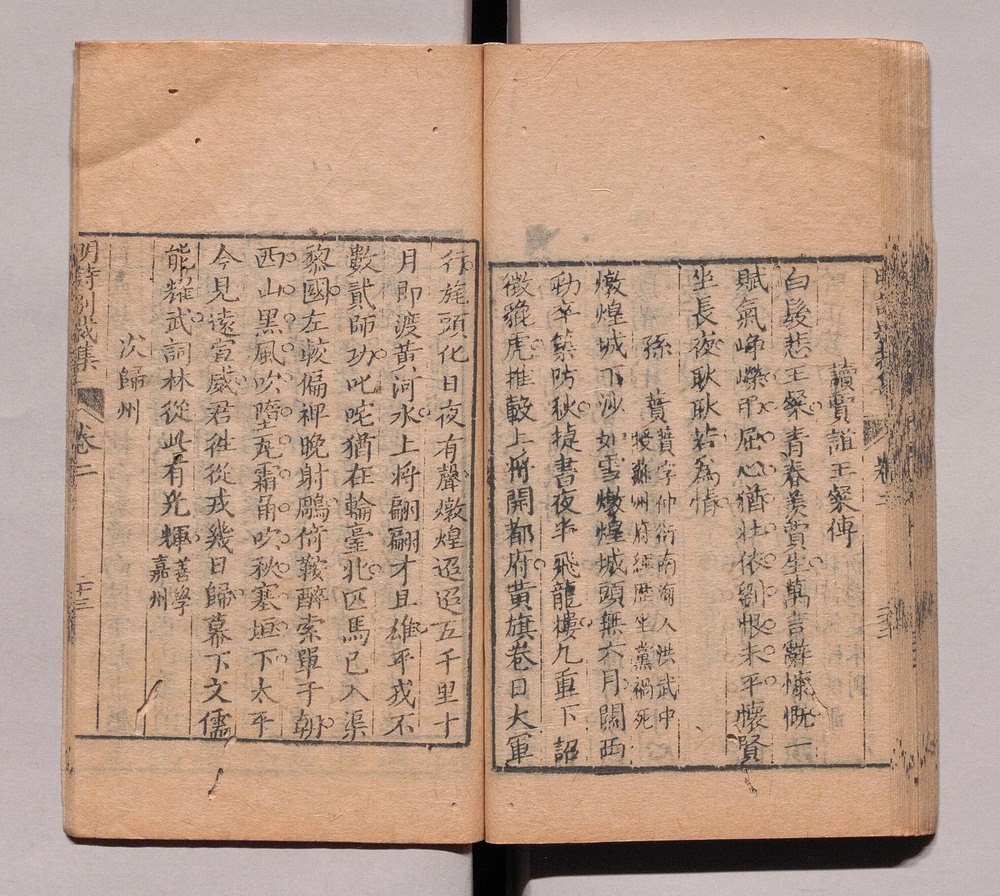 讀賈誼王粲傳
白髮悲王粲青春羨賈生萬言辭慷慨一
賦氣崢嶸弔屈心猶壯依劉恨未平懷賢
坐長夜耿耿若為情
孫蕡
蕡字仲衍南海人洪武中
授蘇州府經歷坐黨禍死
燉煌城下沙如雪燉煌城頭無六月關西
勁卒築防秋捷書夜半飛龍樓九重下詔
徵貔虎推轂上將開都府黃旗卷日大軍
行旄頭化日夜有聲燉煌迢迢五千里十
月即渡黃河水上將翩翩才且雄平戎不
數貳師功叱咤猶在輪臺北匹馬已入渠
黎國左較偏裨晚射鵰倚鞍醉索單于朝
西山黑風吹墮瓦霜角吹秋塞垣下太平
今見遠宣威君徃從戎幾日歸幕下文儒
能耀武詞林從此有光輝
善學
嘉州
次歸州
明詩別裁集 卷二 二十三